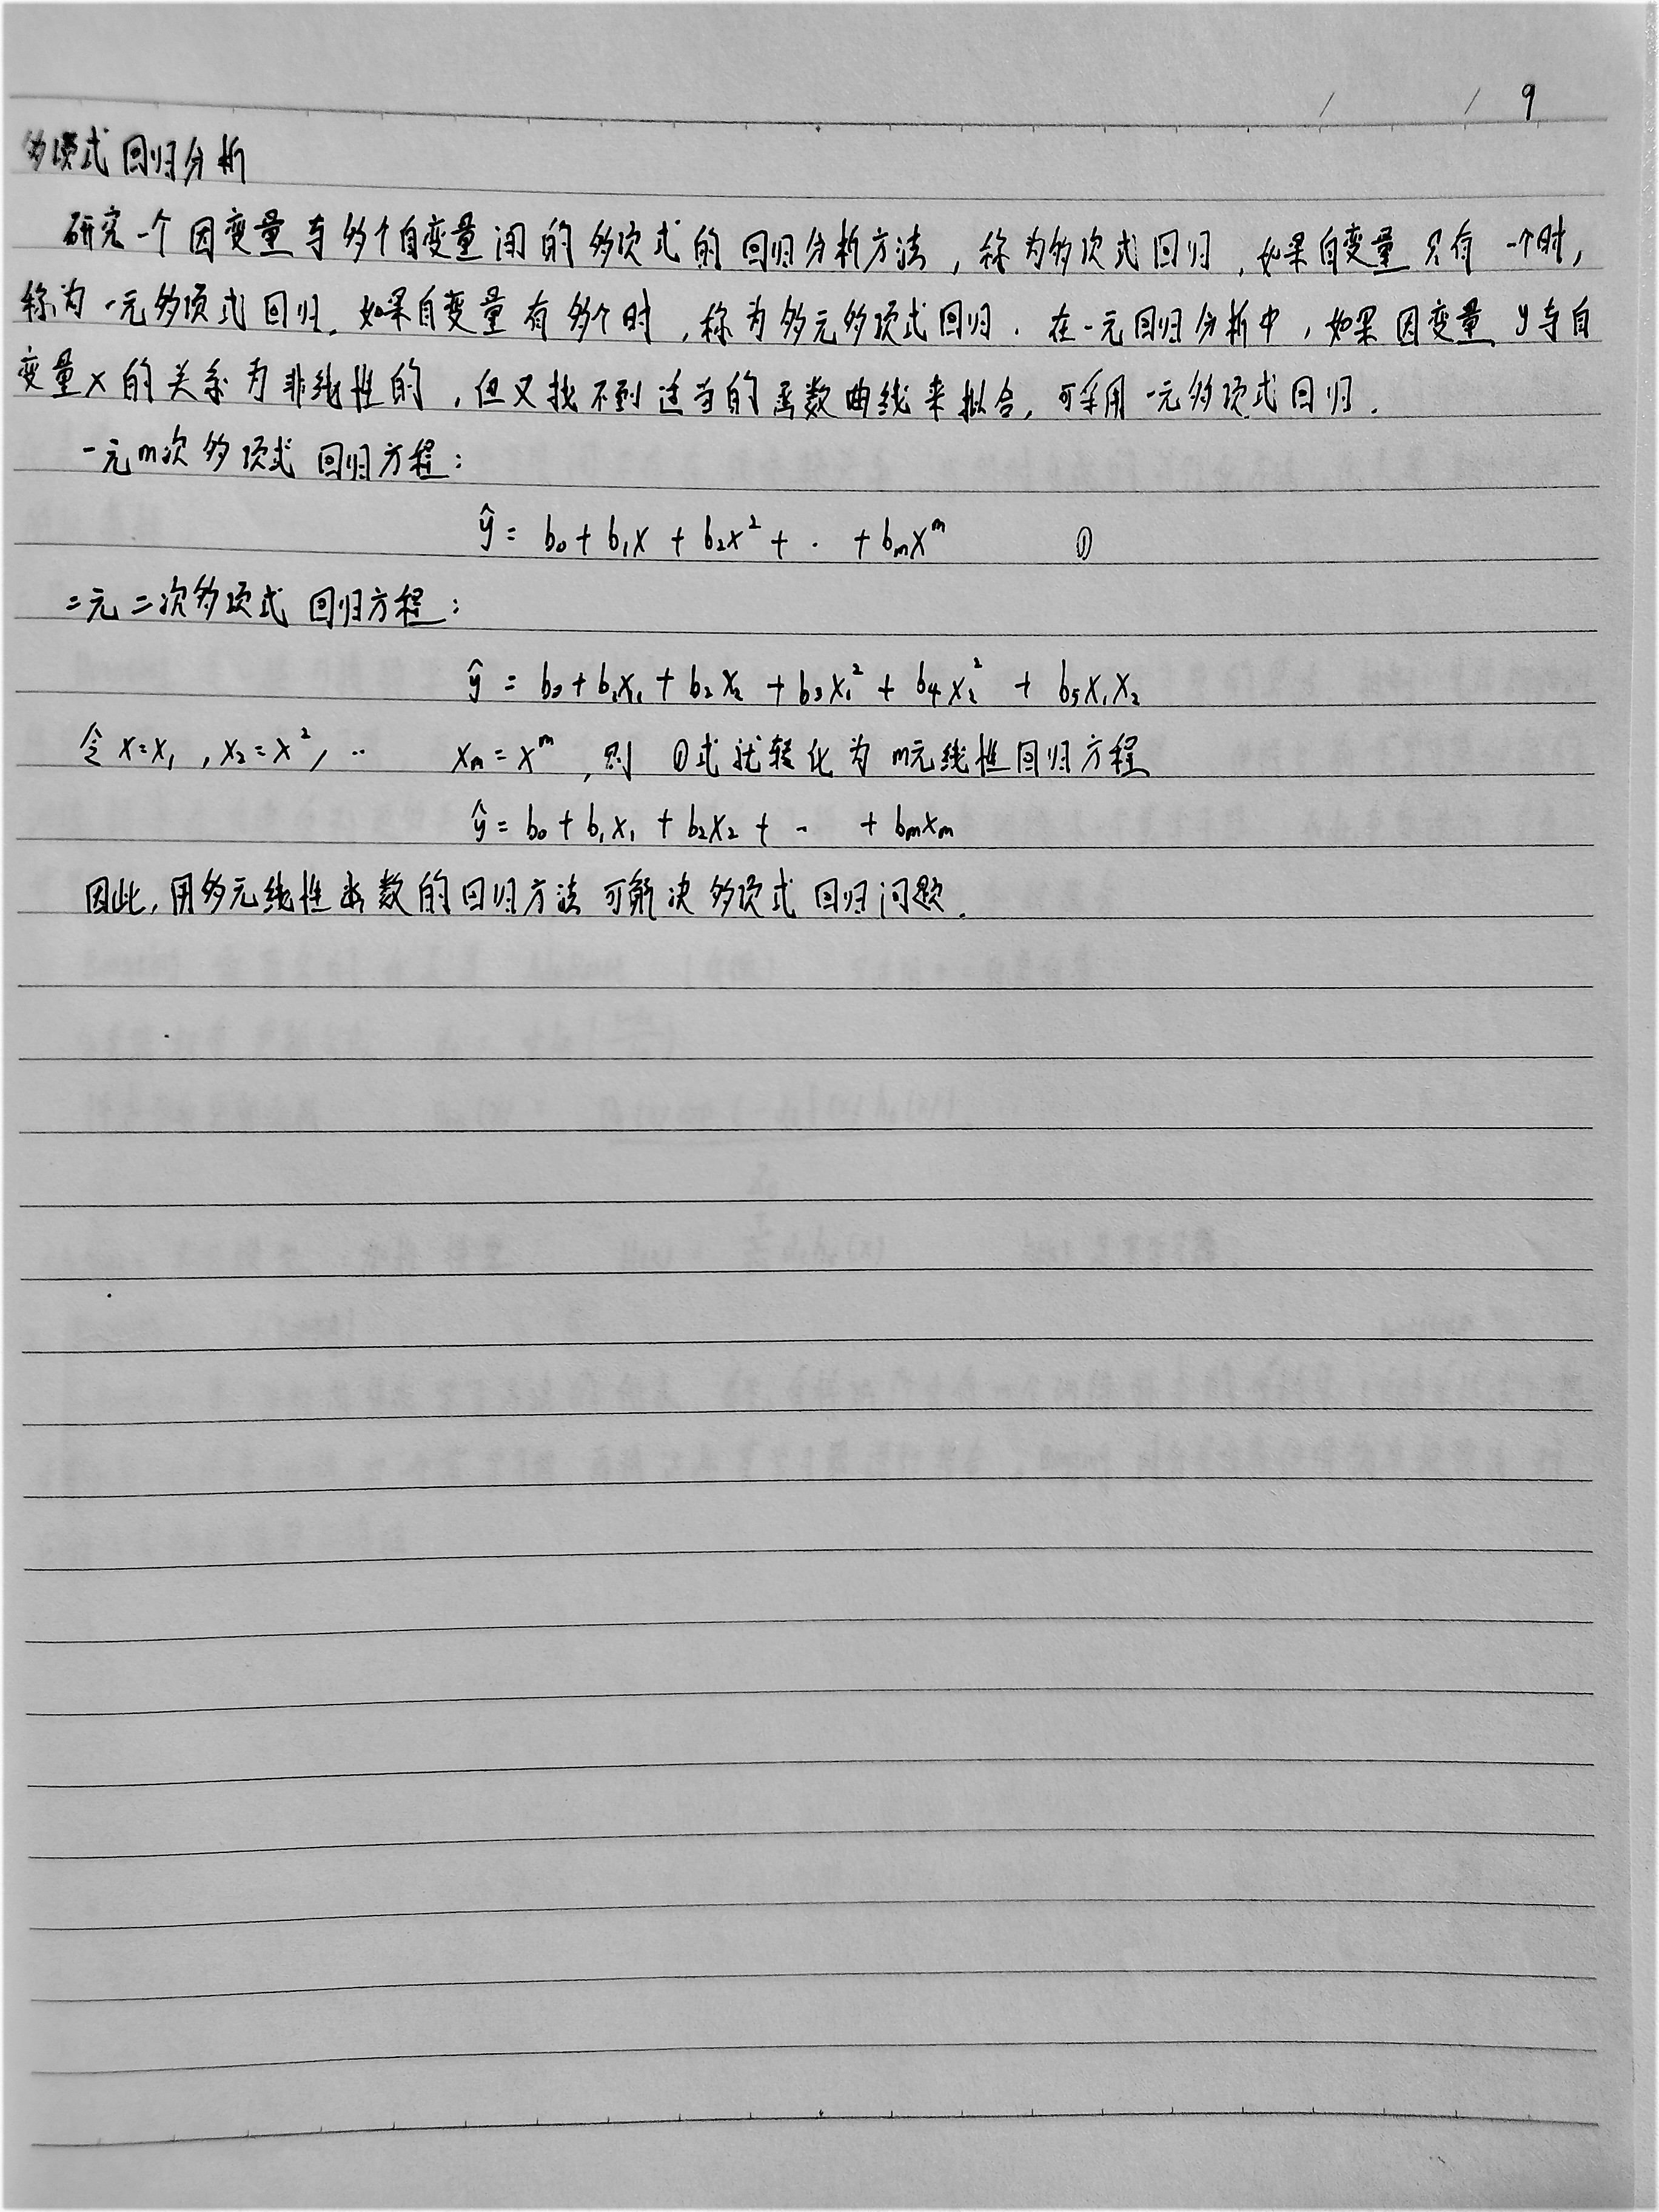 9
多项式回归分析
研究一个因变量与多个自变量间的多项式的回归分析方法，称为多项式回归，如果自变量只有一个时，
称为一元多项式回归，如果自变量有多个时，称为多元多项式回归．在一元回归分析中，如果因变量 y与自
变量x的关系为非线性的，但又找不到适当的函数曲线来拟合，可采用一元多项式回归．
一元m次多项式回归方程：
ŷ = b₀ + b₁x + b₂x² + ·· + bₘxᵐ ①
二元二次多项式回归方程：
ŷ = b₀ + b₁x₁ + b₂x₂ + b₃x₁² + b₄x₂² + b₅x₁x₂
令 x=x₁ , x₂=x², ·· xₘ=xᵐ ，则 ①式就转化为m元线性回归方程
ŷ = b₀ + b₁x₁ + b₂x₂ + ·· + bₘxₘ
因此，用多元线性函数的回归方法可解决多项式回归问题．